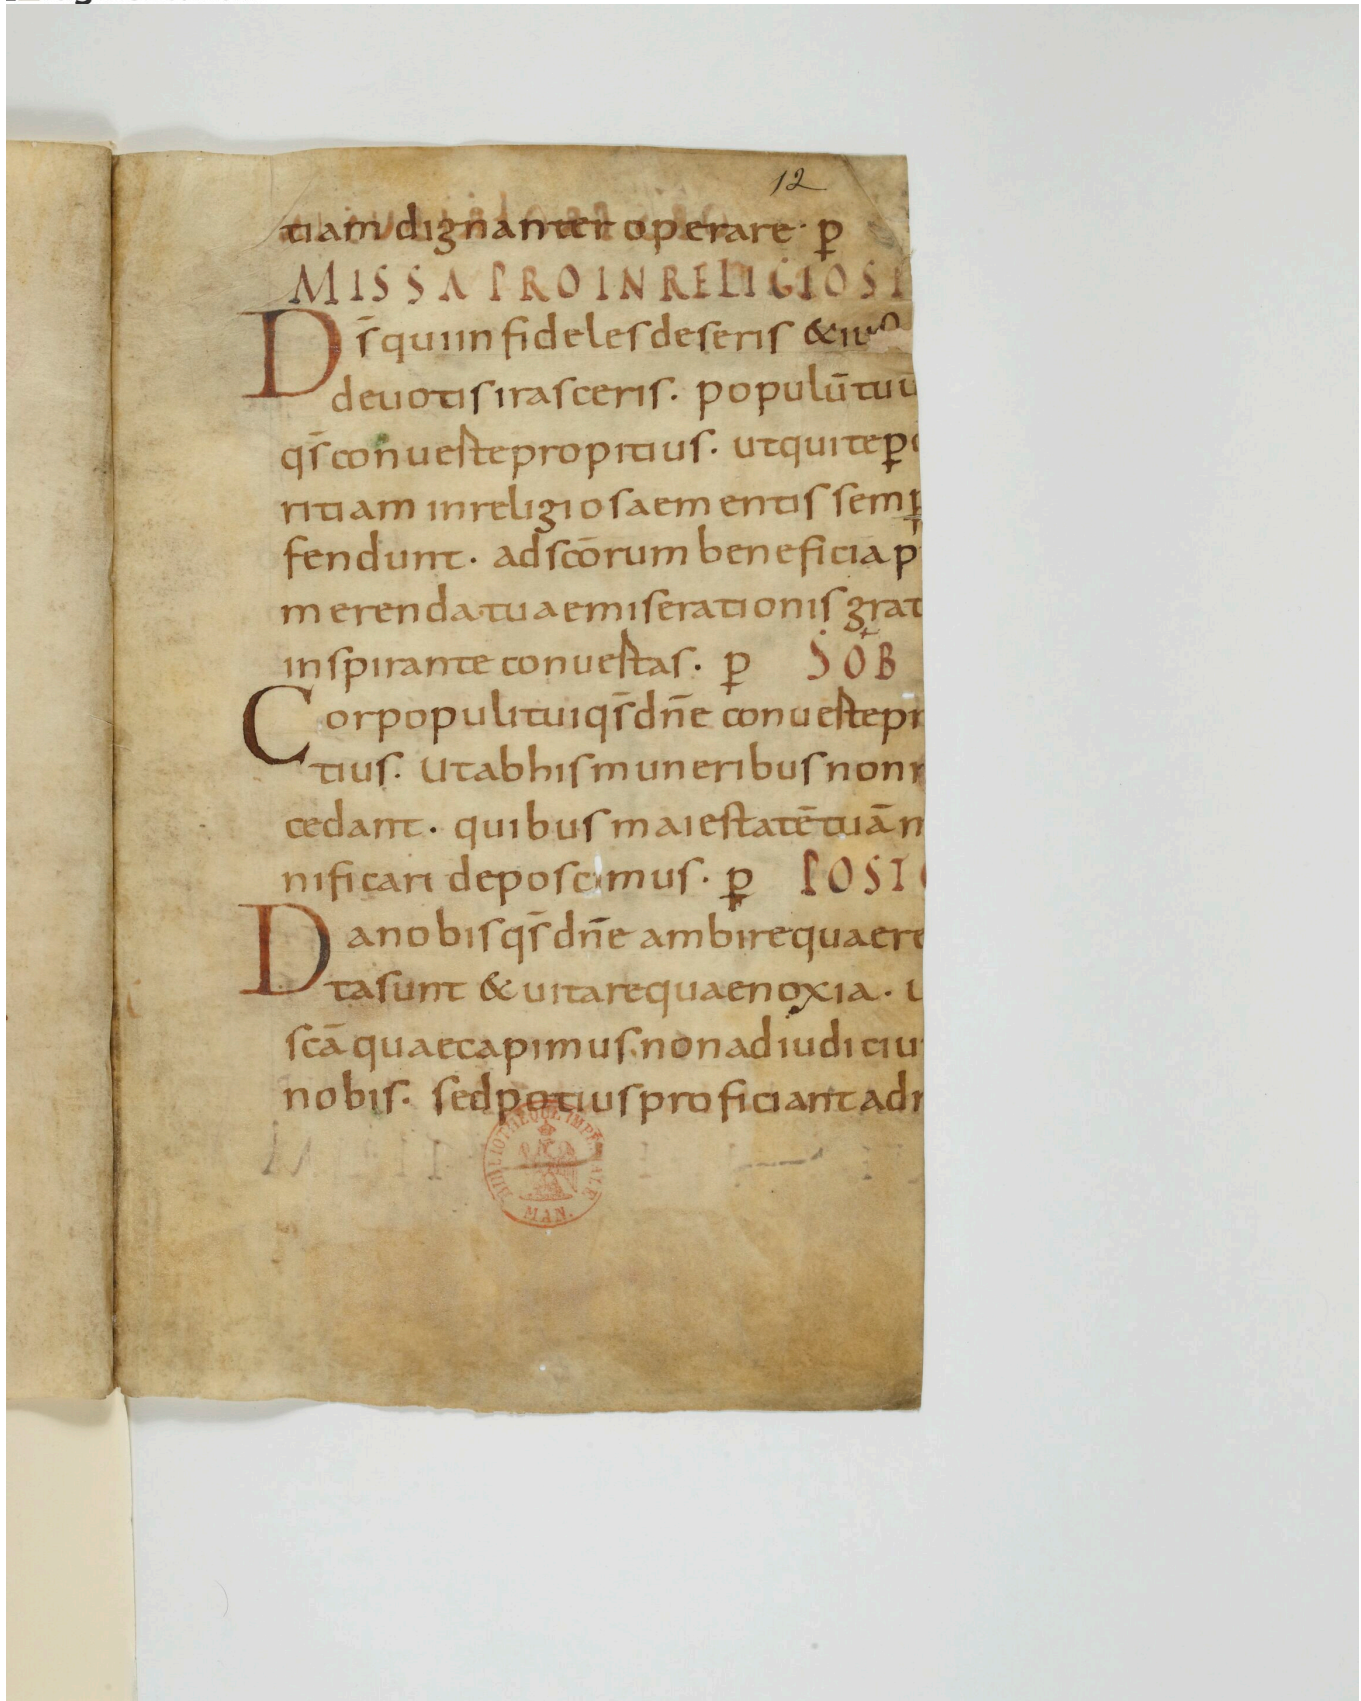 12
tiam dignanter operare· p̲
MISSA PRO INRELIGIOSI
Ds̄ qui infideles deseris &
deuotis irasceris. populū tuū
qs̄ conuerte propitius. ut qui te p̲
ritiam inreligiosae mentis semp̲
fendunt. ad scōrum beneficia p
merenda tuae miserationis grat
inspirante conuertas. p̲ SOB
Cor populi tui qs̄ dn̄e conuerte pr
tius. Ut ab his muneribus non r
cedant. quibus maiestatē tuā m
nificari deposcimus. p̲ POST
Da nobis qs̄ dn̄e ambire quae re
ta sunt & uitare quae noxia. u
scā quae capimus. non ad iudiciu
nobis. sed potius proficiant ad r
BIBLIOTHEQUE IMPERIALE
MAN.